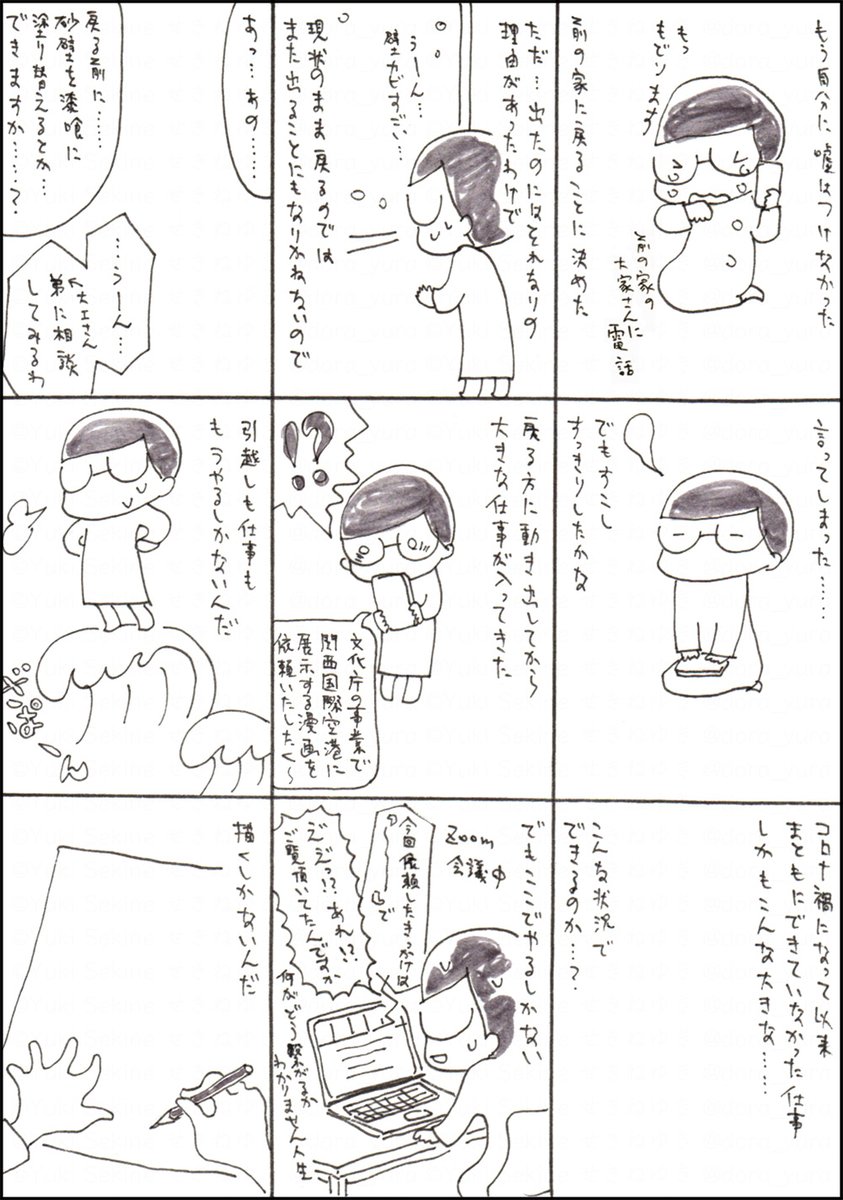 もう自分に嘘はつけなかった
もっ
もどります
前の家の
大家さんに
電話
前の家に戻ることに決めた
ただ…出たのにはそれなりの
理由があったわけで
うーん…
壁カビすご…
現状のまま戻るのでは
また出ることにもなりかねないので
あっ…あの……
戻る前に……
砂壁を漆喰に
塗り替えるとか…
できますか……?
…うーん…
大工さん
弟に相談
してみるわ
言ってしまった…
でもすこし
すっきりしたかな
戻る方に動き出してから
大きな仕事が入ってきた
!?
文化庁の事業で
関西国際空港に
展示する漫画を
依頼いたしたく〜
引越しも仕事も
もうやるしかないんだ
ざぱーん
コロナ禍になって以来
まともにできていなかった仕事
しかもこんな大きな……
こんな状況で
できるのか…?
でもここでやるしかない
Zoom
会議中
今回依頼したきっかけは
で
えっ!?あれ!?
ご覧頂いてたんですか
何がどう繋がるか
わかりません人生
描くしかないんだ